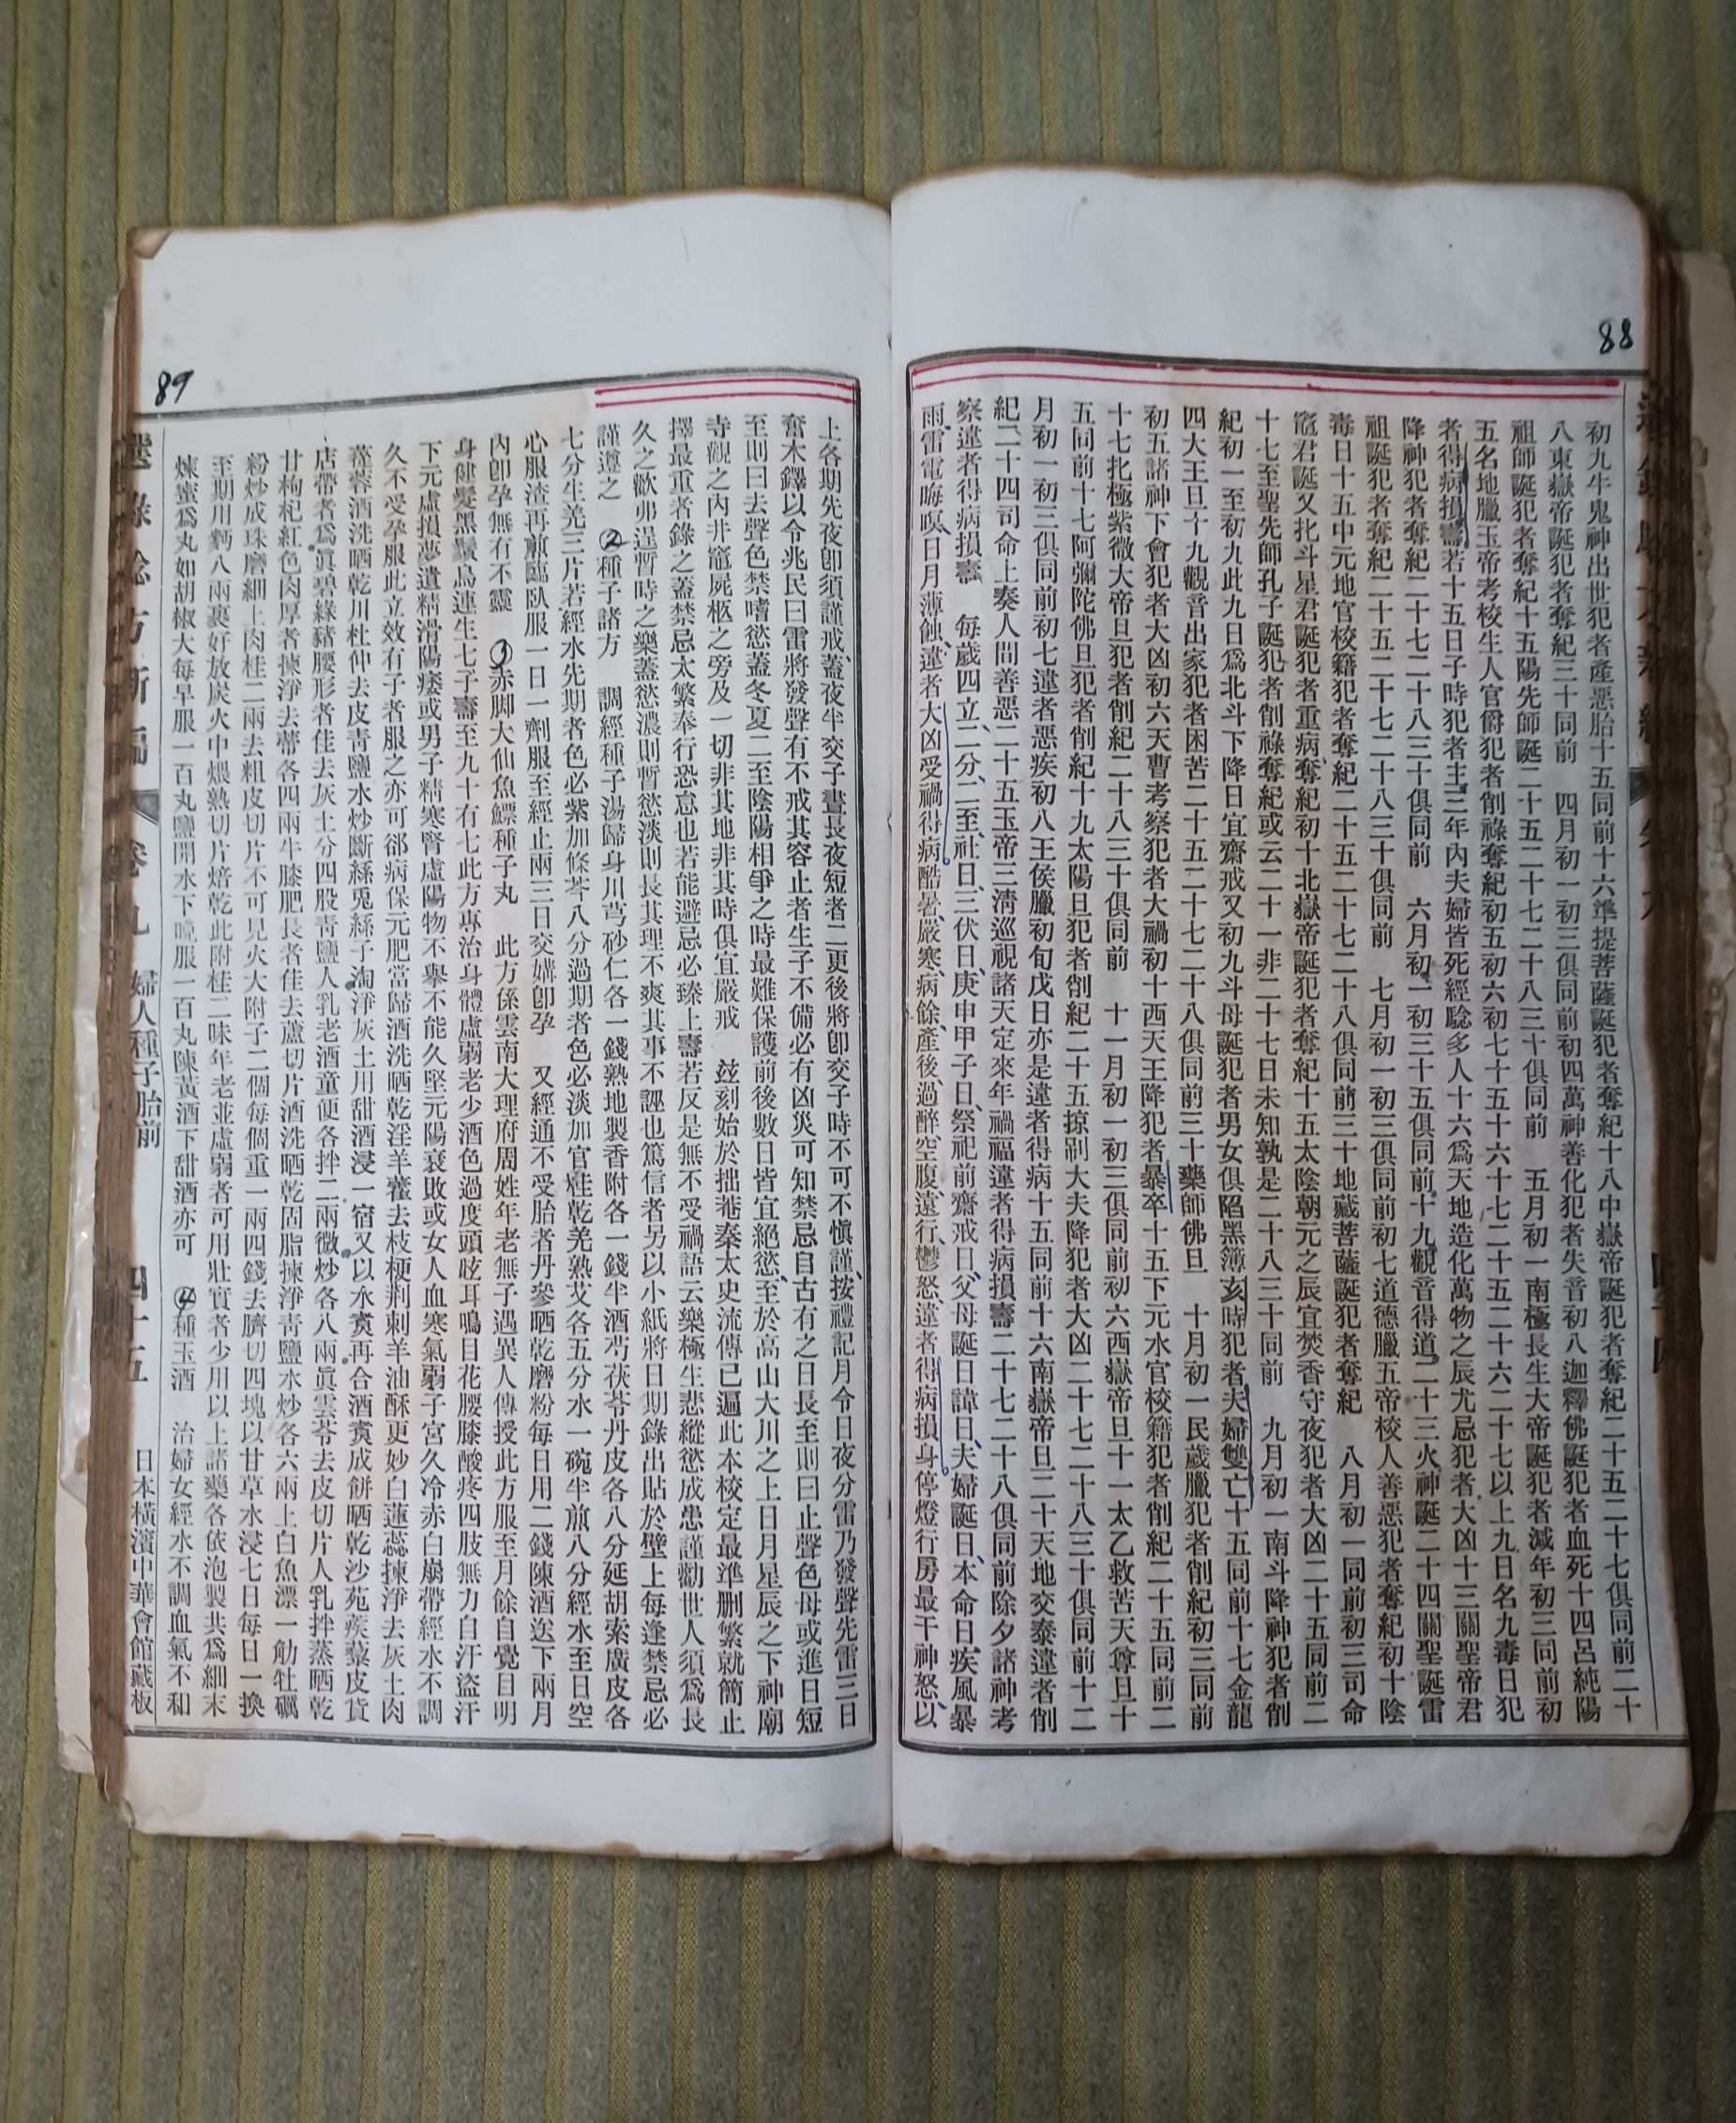 88
初九牛鬼神出世犯者產惡胎十五同前十六準提菩薩誕犯者奪紀十八中嶽帝誕犯者奪紀二十五二十七俱同前二十
八東嶽帝誕犯者奪紀三十同前 四月初一初三俱同前初四萬神善化犯者失音初八迦釋佛誕犯者血死十四呂純陽
祖師誕犯者奪紀十五陽先師誕二十五二十七二十八三十俱同前 五月初一南極長生大帝誕犯者減年初三同前初
五名地臘玉帝考校生人官爵犯者削祿奪紀初五初六初七十五十六十七二十五二十六二十七以上九日名九毒日犯
者得病損壽若十五日子時犯者主三年內夫婦皆死經驗多人十六爲天地造化萬物之辰尤忌犯者大凶十三關聖帝君
降神犯者奪紀二十七二十八三十俱同前 六月初一初三十五俱同前十九觀音得道二十三火神誕二十四關聖誕雷
祖誕犯者奪紀二十五二十七二十八三十俱同前 七月初一初三俱同前初七道德臘五帝校人善惡犯者奪紀初十陰
毒日十五中元地官校籍犯者奪紀二十五二十七二十八俱同前三十地藏菩薩誕犯者奪紀 八月初一同前初三司命
竈君誕又北斗星君誕犯者重病奪紀初十北嶽帝誕犯者奪紀十五太陰朝元之辰宜焚香守夜犯者大凶二十五同前二
十七至聖先師孔子誕犯者削祿奪紀或云二十一非二十七日未知孰是二十八三十同前 九月初一南斗降神犯者削
紀初一至初九此九日爲北斗下降日宜齋戒又初九斗母誕犯者男女俱陷黑簿亥時犯者夫婦雙亡十五同前十七金龍
四大王旦十九觀音出家犯者困苦二十五二十七二十八俱同前三十藥師佛旦 十月初一民歲臘犯者削紀初三同前
初五諸神下會犯者大凶初六天曹考察犯者大禍初十西天王降犯者暴卒十五下元水官校籍犯者削紀二十五同前二
十七北極紫微大帝旦犯者削紀二十八三十俱同前 十一月初一初三俱同前初六西嶽帝旦十一太乙救苦天尊旦十
五同前十七阿彌陀佛旦犯者削紀十九太陽旦犯者削紀二十五掠刷大夫降犯者大凶二十七二十八三十俱同前十二
月初一初三俱同前初七違者惡疾初八王侯臘初旬戊日亦是違者得病十五同前十六南嶽帝旦二十天地交泰違者削
紀二十四司命上奏人間善惡二十五玉帝三清巡視諸天定來年禍福違者得病損壽二十七二十八俱同前除夕諸神考
察違者得病損壽 每歲四立二分二至社日三伏日庚申甲子日祭祀前齋戒日父母誕日諱日夫婦誕日本命日疾風暴
雨雷電晦暝日月薄蝕違者大凶受禍得病酷暑嚴寒病餘產後過醉空腹遠行鬱怒違者得病損身停燈行房最干神怒以
89
上各期先夜卽須謹戒蓋夜半交子晝長夜短者二更後將卽交子時不可不愼謹按禮記月令日夜分雷乃發聲先雷三日
奮木鐸以令兆民曰雷將發聲有不戒其容止者生子不備必有凶災可知禁忌自古有之日長至則曰止聲色母或進日短
至則曰去聲色禁嗜慾蓋冬夏二至陰陽相爭之時最難保護前後數日皆宜絕慾至於高山大川之上日月星辰之下神廟
寺觀之內井竈屍柩之旁及一切非其地非其時俱宜嚴戒 玆刻始於拙菴秦太史流傳已遍此本校定最準删繁就簡止
擇最重者錄之蓋禁忌太繁奉行恐怠也若能避忌必臻上壽若反是無不受禍語云樂極生悲縱慾成患謹勸世人須爲長
久之歡弗逞暫時之樂蓋慾濃則暫慾淡則長其理不爽其事不誣也篤信者另以小紙將日期錄出貼於壁上每逢禁忌必
謹遵之 ②種子諸方 調經種子湯歸身川芎砂仁各一錢熟地製香附各一錢半酒芍茯苓丹皮各八分延胡索廣皮各
七分生羌三片若經水先期者色必紫加條芩八分過期者色必淡加官桂乾羌熟艾各五分水一碗半煎八分經水至日空
心服渣再煎臨臥服一日一劑服至經止兩三日交媾卽孕 又經通不受胎者丹參晒乾磨粉每日用二錢陳酒送下兩月
內卽孕無有不靈 ③赤脚大仙魚鰾種子丸 此方係雲南大理府周姓年老無子遇異人傳授此方服至月餘自覺目明
身健髮黑鬚烏連生七子壽至九十有七此方專治身體虛弱老少酒色過度頭眩耳鳴目花腰膝酸疼四肢無力自汗盜汗
下元虛損夢遺精滑陽痿或男子精寒腎虛陽物不舉不能久堅元陽衰敗或女人血寒氣弱子宮久冷赤白崩帶經水不調
久不受孕服此立效有子者服之亦可郤病保元肥當歸酒洗晒乾淫羊藿去枝梗荆刺羊油酥更妙白蓮蕊揀淨去灰土肉
蓯蓉酒洗晒乾川杜仲去皮靑鹽水炒斷絲兎絲子淘淨灰土用甜酒浸一宿又以水煑再合酒煑成餅晒乾沙苑蒺藜皮貨
店帶者爲眞碧綠豬腰形者佳去灰土分四股靑鹽人乳老酒童便各拌二兩微炒各八兩眞雲苓去皮切片人乳拌蒸晒乾
甘枸杞紅色肉厚者揀淨去蒂各四兩牛膝肥長者佳去蘆切片酒洗晒乾固脂揀淨靑鹽水炒各六兩上白魚漂一觔牡礪
粉炒成珠磨細上肉桂二兩去粗皮切片不可見火大附子二個每個重一兩四錢去臍切四塊以甘草水浸七日每日一換
至期用麪八兩裹好放炭火中煨熟切片焙乾此附桂二味年老並虛弱者可用壯實者少用以上諸藥各依泡製共爲細末
煉蜜爲丸如胡椒大每早服一百丸鹽開水下晚服一百丸陳黃酒下甜酒亦可 ④種玉酒 治婦女經水不調血氣不和
卷九 婦人種子胎前 四十五 日本橫濱中華會館藏板